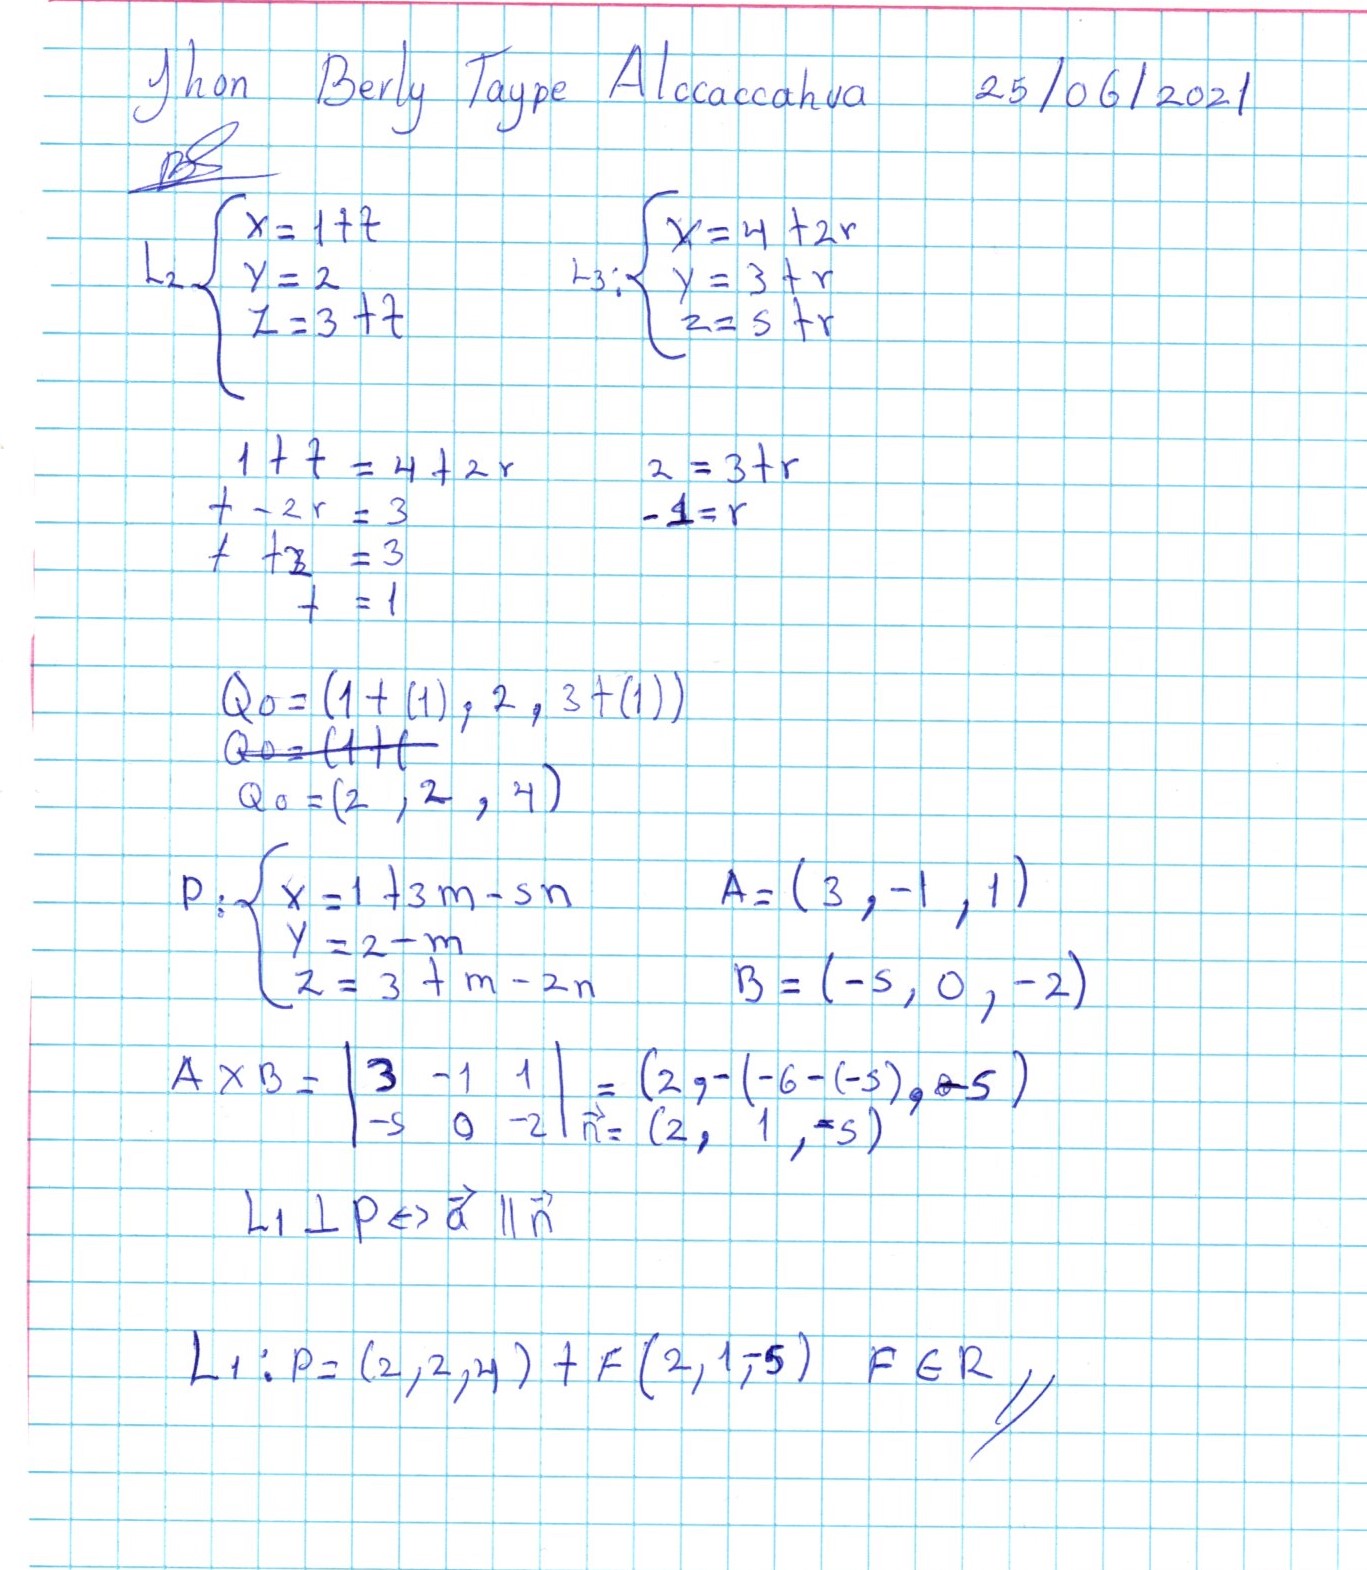 Jhon Berly Taype Alccaccahua 25/06/2021
L2 { x = 1+t
y = 2
z = 3+t
L3: { x = 4+2r
y = 3+r
z = 5+r
1+t = 4+2r
t - 2r = 3
t + 2 = 3
t = 1
2 = 3+r
-1 = r
Q0 = (1+(1), 2, 3+(1))
Q0 = (1+(
Q0 = (2, 2, 4)
P: { x = 1+3m-5n
y = 2-m
z = 3+m-2n
A = (3, -1, 1)
B = (-5, 0, -2)
A X B = | 3 -1 1 | = (2, -(-6-(-5), -5)
| -5 0 -2 | n⃗ = (2, 1, -5)
L1 ⊥ P <-> a⃗ || n⃗
L1: P = (2,2,4) + F(2,1,-5) F ∈ R //